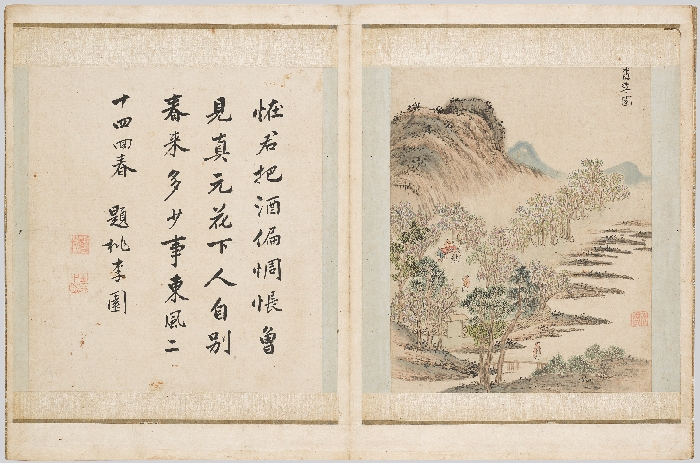 恠君把酒偏惆悵曾
見真元花下人自別
春来多少事東風二
十四回春 題桃李園